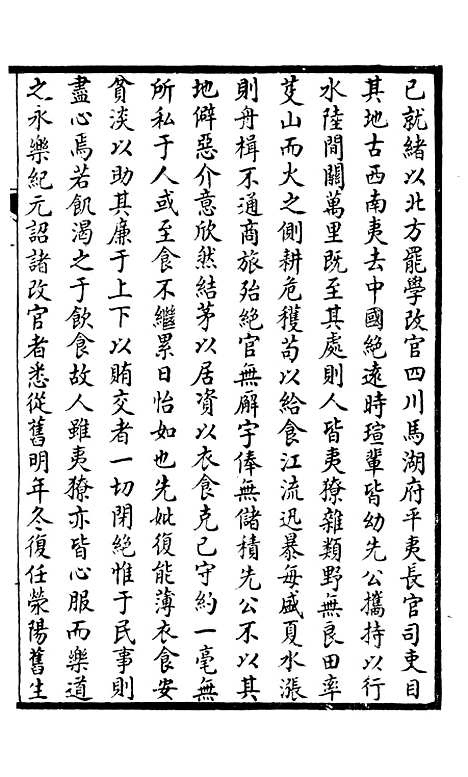 已就緒以北方罷學改官四川馬湖府平夷長官司吏目
其地古西南夷去中國絕遠時瑄輩皆幼先公攜持以行
水陸間關萬里既至其處則人皆夷獠雜類野無良田率
芟山而火之側耕危穫苟以給食江流迅暴每盛夏水漲
則舟楫不通商旅殆絕官無廨宇俸無儲積先公不以其
地僻惡介意欣然結茅以居資以衣食克己守約一毫無
所私于人或至食不繼累日怡如也先妣復能薄衣食安
貧淡以助其廉于上下以賄交者一切閉絕惟于民事則
盡心焉若飢渴之于飲食故人雖夷獠亦皆心服而樂道
之永樂紀元詔諸改官者悉從舊明年冬復任滎陽舊生